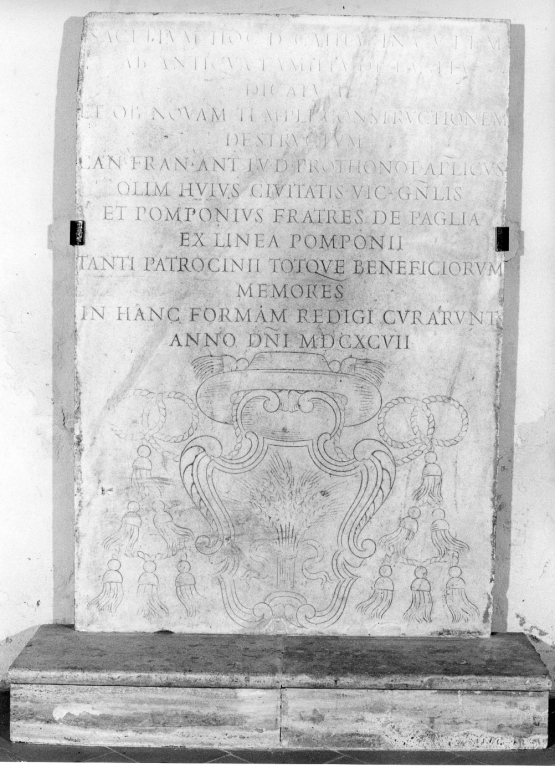 SACELLVM HOC D
AB ANTIQVA FAMILIA DE PAGLIA
DICATVM
ET OB NOVAM TEMPLI CONSTRVCTIONEM
DESTRVCTVM
CAN·FRAN·ANT·IVD·PROTHONOT·APLICVS
OLIM HVIVS CIVITATIS VIC·GÑLIS
ET POMPONIVS FRATRES DE PAGLIA
EX LINEA POMPONII
TANTI PATROCINII TOTQVE BENEFICIORVM
MEMORES
IN HANC FORMAM REDIGI CVRARVNT
ANNO DÑI MDCXCVII